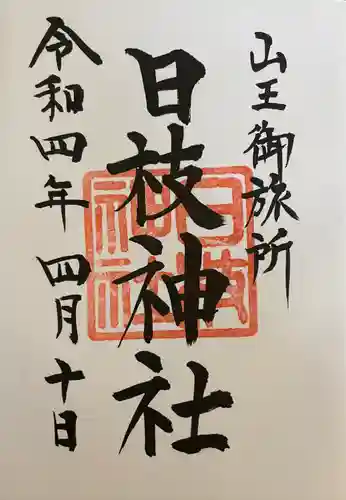 山王御旅所
日枝神社
令和四年 四月 十日
日枝神社